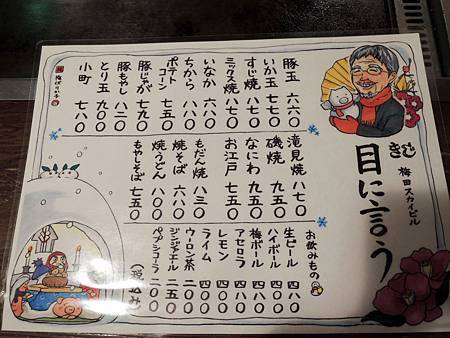 きじ
梅田スカイビル
目に言う
豚玉 六六〇
いか玉 七五〇
すじ焼 八七〇
ミックス焼 八七〇
いなか 六六〇
ちから 八一〇
ポテトコーン 七五〇
豚じゃが 七九〇
豚もやし 八二〇
とり玉 九〇〇
小町 七八〇
滝見焼 八七〇
磯焼 九五〇
なにわ 九五〇
お江戸 七五〇
もだん焼 八三〇
焼そば 六八〇
焼うどん 八〇〇
もやしそば 七五〇
お飲みもの
生ビール 四八〇
ハイボール 四〇〇
梅ボール 四〇〇
アセロラ 四〇〇
レモン 四〇〇
ライム 四〇〇
ウーロン茶 二〇〇
ジンジャエール 二五〇
ペプシコーラ 二〇〇
(税込み)